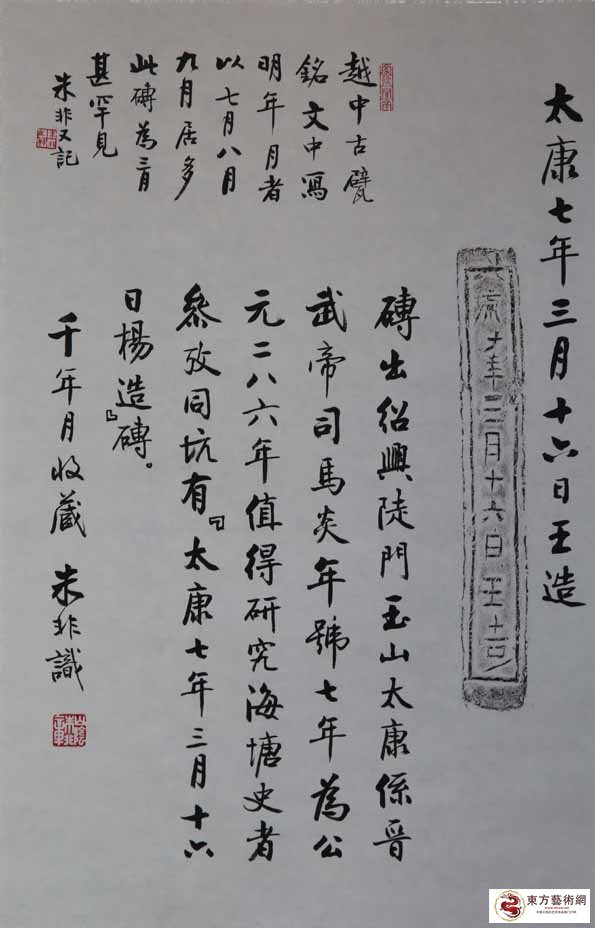 太康七年三月十六日王造
太康七年三月十六日王造
磚出紹興陡門玉山太康係晉
武帝司馬炎年號七年為公
元二八六年值得研究海塘史者
參攷同坑有『太康七年三月十六
日楊造』磚。
千年月收藏 朱非識
越中古甓
銘文中寫
明年月者
以七月八月
九月居多
此磚為三月
甚罕見
朱非又記
東方藝術網